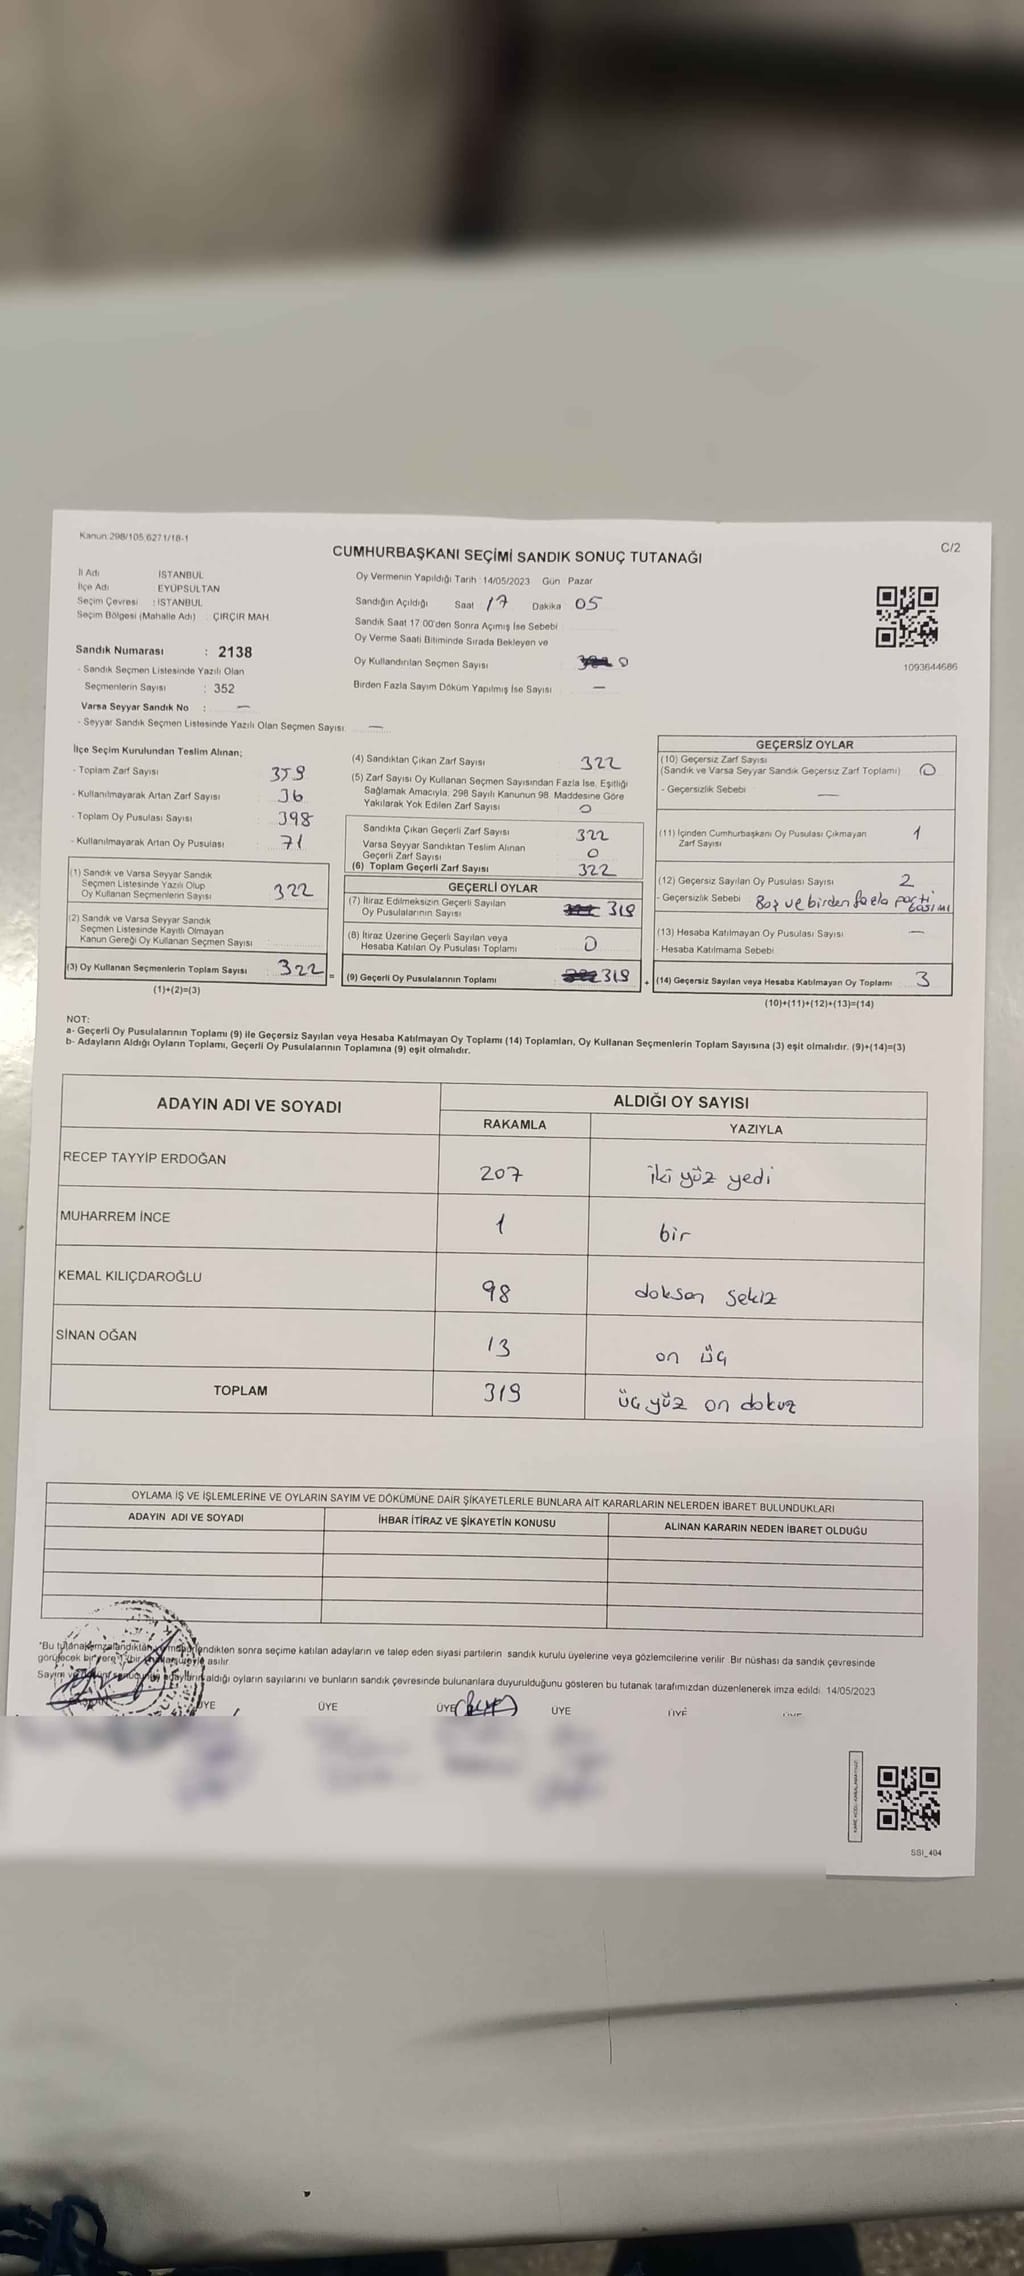 Kanun 298/105,6271/18-1
C/2
CUMHURBAŞKANI SEÇİMİ SANDIK SONUÇ TUTANAĞI
İl Adı İSTANBUL
İlçe Adı EYÜPSULTAN
Seçim Çevresi : İSTANBUL
Seçim Bölgesi (Mahalle Adı) ÇIRÇIR MAH
Sandık Numarası : 2138
- Sandık Seçmen Listesinde Yazılı Olan
Seçmenlerin Sayısı : 352
Varsa Seyyar Sandık No : —
- Seyyar Sandık Seçmen Listesinde Yazılı Olan Seçmen Sayısı: —
Oy Vermenin Yapıldığı Tarih : 14/05/2023 Gün Pazar
Sandığın Açıldığı Saat 17 Dakika 05
Sandık Saat 17.00'den Sonra Açımış İse Sebebi
Oy Verme Saati Bitiminde Sırada Bekleyen ve
Oy Kullandırılan Seçmen Sayısı 0
Birden Fazla Sayım Döküm Yapılmış İse Sayısı —
1093644686
İlçe Seçim Kurulundan Teslim Alınan;
- Toplam Zarf Sayısı 359
- Kullanılmayarak Artan Zarf Sayısı 36
- Toplam Oy Pusulası Sayısı 398
- Kullanılmayarak Artan Oy Pusulası 71
(1) Sandık ve Varsa Seyyar Sandık
Seçmen Listesinde Yazılı Olup
Oy Kullanan Seçmenlerin Sayısı 322
(2) Sandık ve Varsa Seyyar Sandık
Seçmen Listesinde Kayıtlı Olmayan
Kanun Gereği Oy Kullanan Seçmen Sayısı
(3) Oy Kullanan Seçmenlerin Toplam Sayısı 322 =
(1)+(2)=(3)
(4) Sandıktan Çıkan Zarf Sayısı 322
(5) Zarf Sayısı Oy Kullanan Seçmen Sayısından Fazla İse, Eşitliği
Sağlamak Amacıyla, 298 Sayılı Kanunun 98. Maddesine Göre
Yakılarak Yok Edilen Zarf Sayısı 0
Sandıkta Çıkan Geçerli Zarf Sayısı 322
Varsa Seyyar Sandıktan Teslim Alınan
Geçerli Zarf Sayısı 0
(6) Toplam Geçerli Zarf Sayısı 322
GEÇERLİ OYLAR
(7) İtiraz Edilmeksizin Geçerli Sayılan
Oy Pusulalarının Sayısı 319
(8) İtiraz Üzerine Geçerli Sayılan veya
Hesaba Katılan Oy Pusulası Toplamı 0
(9) Geçerli Oy Pusulalarının Toplamı 319 +
GEÇERSİZ OYLAR
(10) Geçersiz Zarf Sayısı
(Sandık ve Varsa Seyyar Sandık Geçersiz Zarf Toplamı) 0
- Geçersizlik Sebebi —
(11) İçinden Cumhurbaşkanı Oy Pusulası Çıkmayan
Zarf Sayısı 1
(12) Geçersiz Sayılan Oy Pusulası Sayısı 2
- Geçersizlik Sebebi Boş ve birden fazla parti basımı
(13) Hesaba Katılmayan Oy Pusulası Sayısı —
- Hesaba Katılmama Sebebi
(14) Geçersiz Sayılan veya Hesaba Katılmayan Oy Toplamı 3
(10)+(11)+(12)+(13)=(14)
NOT:
a- Geçerli Oy Pusulalarının Toplamı (9) ile Geçersiz Sayılan veya Hesaba Katılmayan Oy Toplamı (14) Toplamları, Oy Kullanan Seçmenlerin Toplam Sayısına (3) eşit olmalıdır. (9)+(14)=(3)
b- Adayların Aldığı Oyların Toplamı, Geçerli Oy Pusulalarının Toplamına (9) eşit olmalıdır.
ADAYIN ADI VE SOYADI ALDIĞI OY SAYISI
RAKAMLA YAZIYLA
RECEP TAYYİP ERDOĞAN 207 iki yüz yedi
MUHARREM İNCE 1 bir
KEMAL KILIÇDAROĞLU 98 doksan sekiz
SİNAN OĞAN 13 on üç
TOPLAM 319 üç yüz on dokuz
OYLAMA İŞ VE İŞLEMLERİNE VE OYLARIN SAYIM VE DÖKÜMÜNE DAİR ŞİKAYETLERLE BUNLARA AİT KARARLARIN NELERDEN İBARET BULUNDUKLARI
ADAYIN ADI VE SOYADI İHBAR İTİRAZ VE ŞİKAYETİN KONUSU ALINAN KARARIN NEDEN İBARET OLDUĞU
"Bu tutanak imzalandıktan ve mühürlendikten sonra seçime katılan adayların ve talep eden siyasi partilerin sandık kurulu üyelerine veya gözlemcilerine verilir. Bir nüshası da sandık çevresinde
görülecek bir yere bir asılır.
Sayım ve adayların aldığı oyların sayılarını ve bunların sandık çevresinde bulunanlara duyurulduğunu gösteren bu tutanak tarafımızdan düzenlenerek imza edildi. 14/05/2023
ÜYE ÜYE ÜYE ÜYE ÜYE
SSI_404